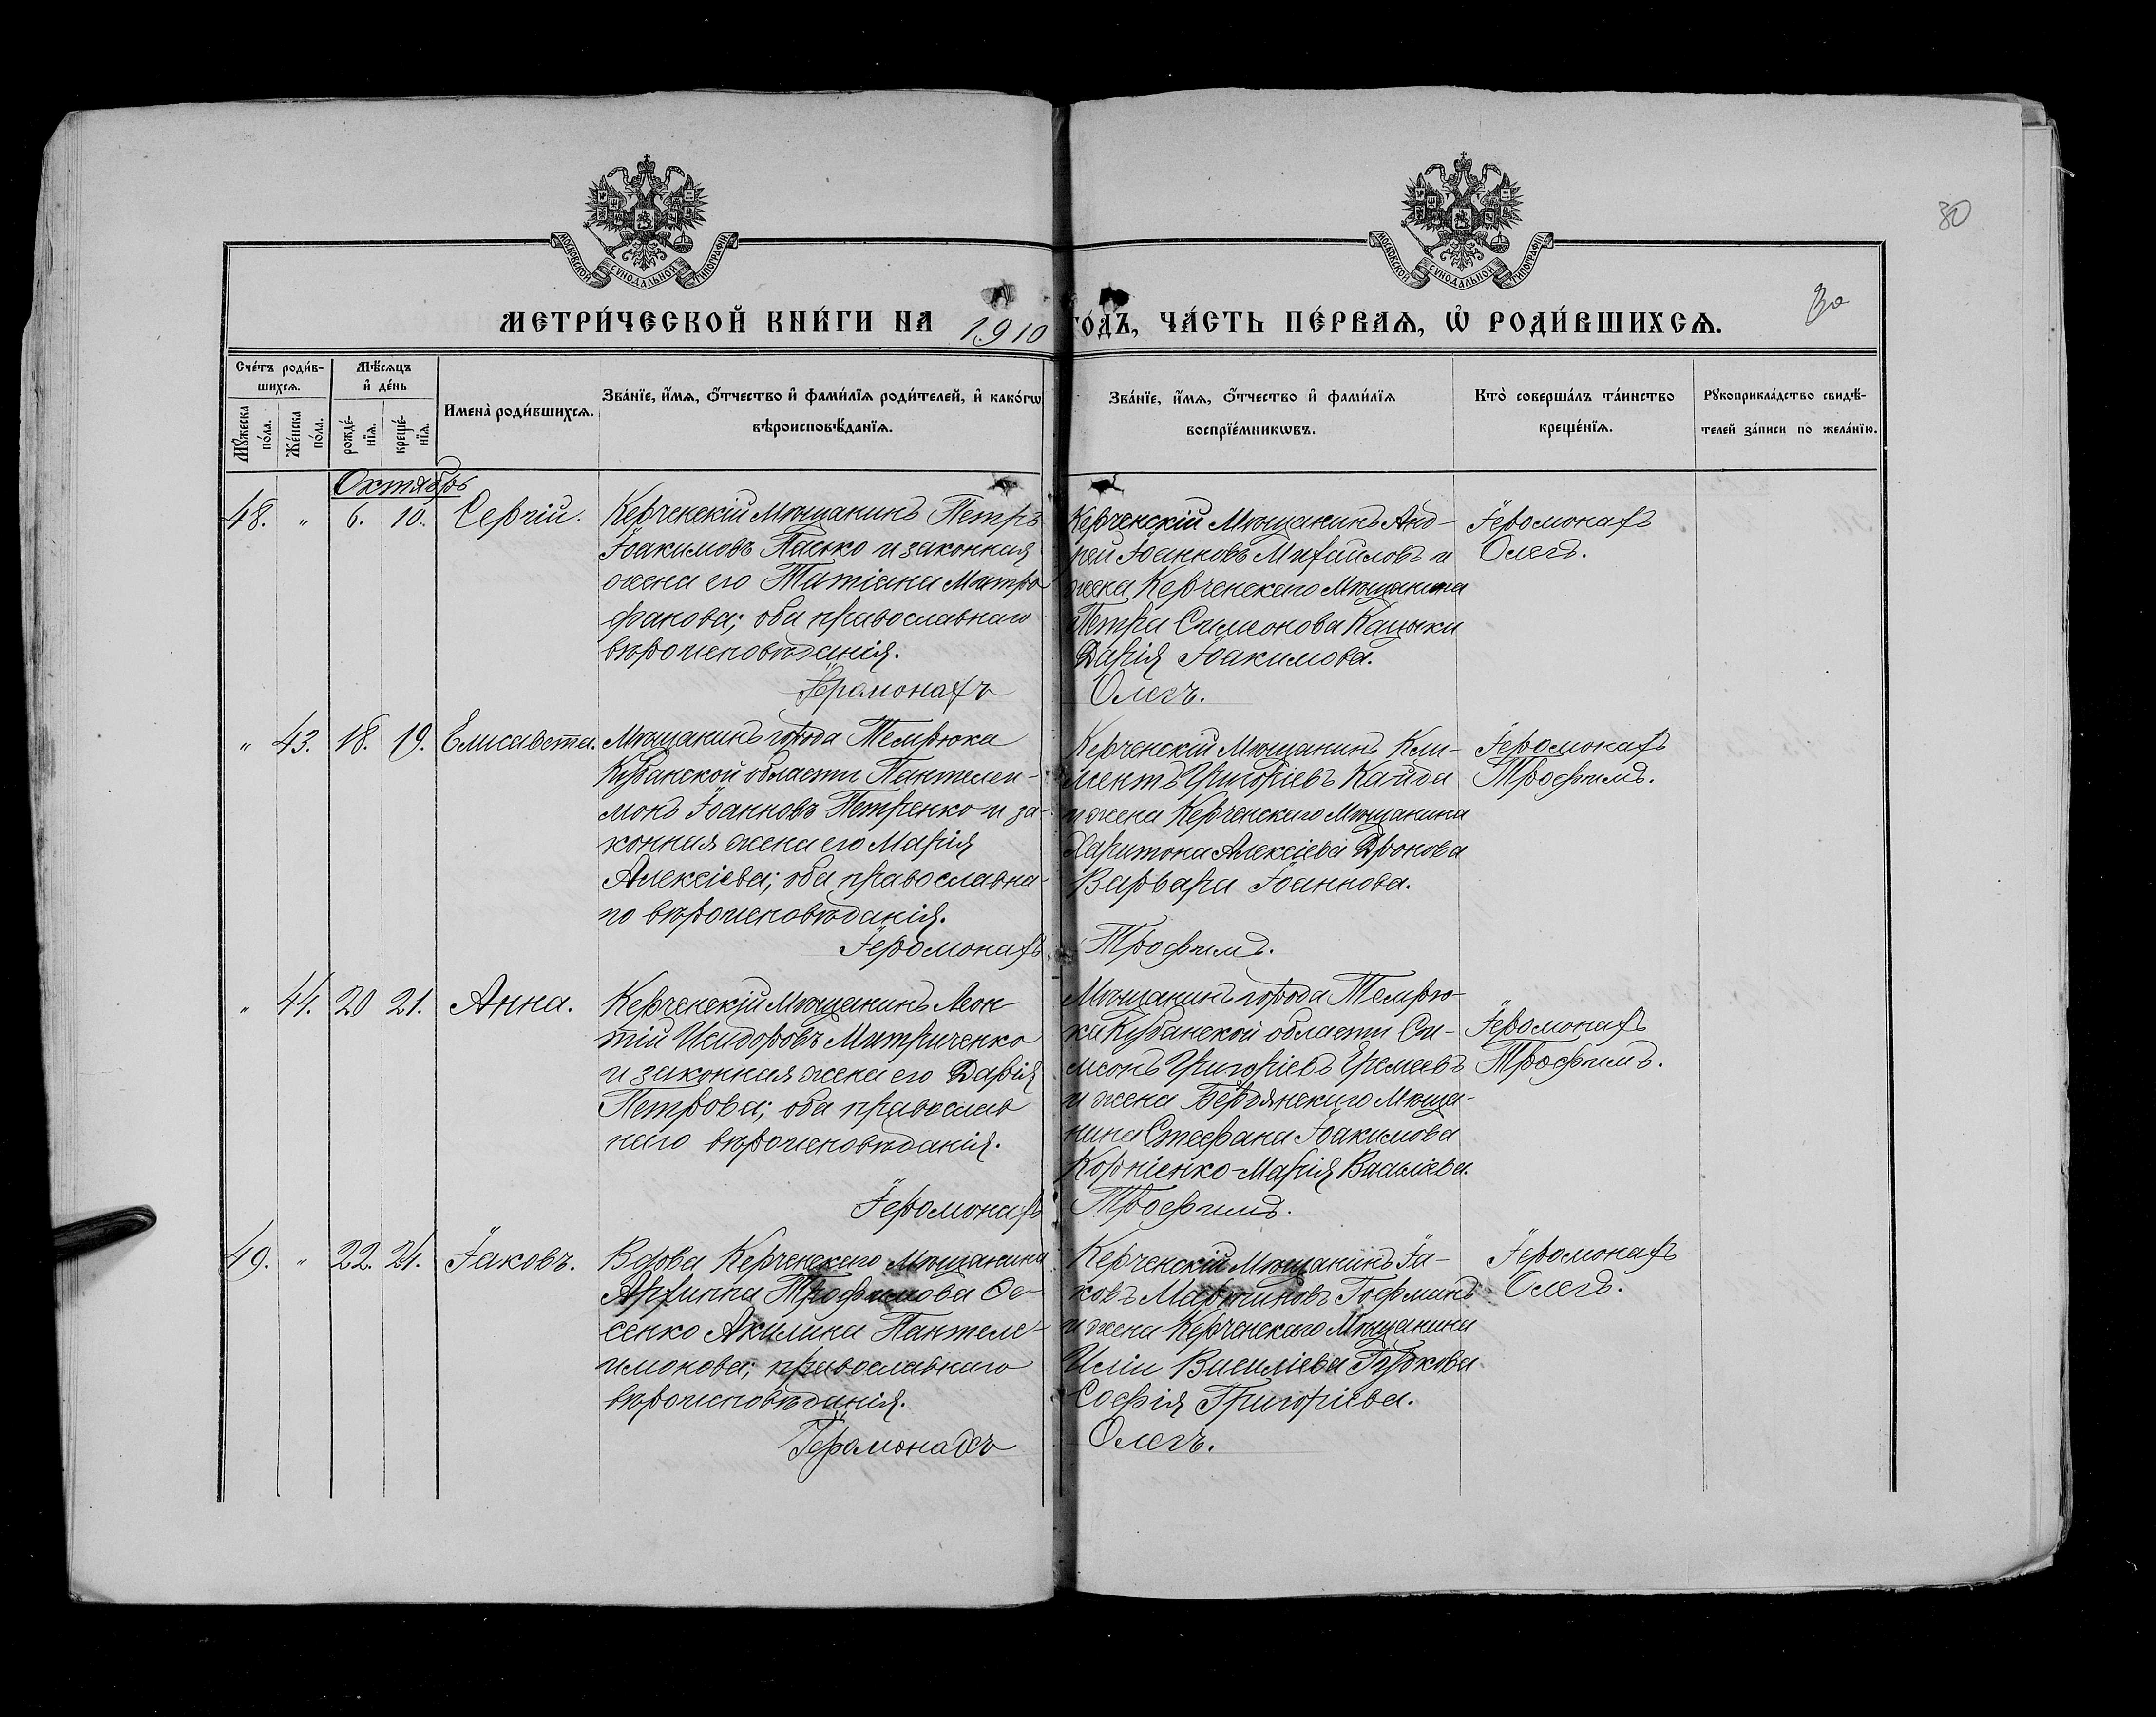 30
МОСКОВСКОЙ СѴНОДАЛЬНОЙ ТИПОГРАФІИ
МОСКОВСКОЙ СѴНОДАЛЬНОЙ ТИПОГРАФІИ
МЕТРИ́ЧЕСКОЙ КНИ́ГИ НА 1910 ГО́ДЪ, ЧА́СТЬ ПЕ́РВАѦ, Ѡ҆ РОДИ́ВШИХСѦ.
30
Сче́тъ роди́в-
шихсѧ.
Мꙋ́жеска
по́ла.
Же́нска
по́ла.
Мѣ́сѧцъ
и҆ де́нь
рожде́-
нїѧ.
креще́-
нїѧ.
Имена̀ роди́вшихсѧ.
Зва́нїе, и҆́мѧ, ѻ҆́тчество и҆ фами́лїѧ роди́телей, и҆ како́гѡ
вѣроисповѣ́данїѧ.
Зва́нїе, и҆́мѧ, ѻ҆́тчество и҆ фами́лїѧ
воспрїе́мникѡвъ.
Кто̀ соверша́лъ та́инство
креще́нїѧ.
Рꙋкоприкла́дство свидѣ́-
телей за́писи по жела́нїю.
Октябрь
48. " 6. 10. Сергій.
Керченскій Мѣщанинъ Петръ
Іоакимовъ Пасько и законная
жена его Татіана Митро
фанова; оба православнаго
вѣроисповѣданія.
Іеромонахъ
Керченскій Мѣщанинъ Анд-
рей Іоанновъ Михайловъ и
жена Керченскаго Мѣщанина
Петра Симонова Кацыки
Дарія Іоакимова.
Олегъ.
Іеромонахъ
Олегъ.
" 43. 18. 19. Елисавета.
Мѣщанинъ города Темрюка
Кубанской области Пантелеи-
монъ Іоанновъ Петренко и за-
конная жена его Марія
Алексіева; оба православна-
го вѣроисповѣданія.
Іеромонахъ
Керченскій Мѣщанинъ Кли-
ментъ Григоріевъ Кайда
и жена Керченскаго Мѣщанина
Харитона Алексіева Дронова
Варвара Іоаннова.
Трофимъ.
Іеромонахъ
Трофимъ.
" 44. 20 21. Анна.
Керченскій Мѣщанинъ Леон
тій Исидоровъ Митриченко
и законная жена его Дарія
Петрова; оба православ
наго вѣроисповѣданія.
Іеромонахъ
Мѣщанинъ города Темрю-
ка Кубанской области Си-
меонъ Григоріевъ Еремеевъ
и жена Бердянскаго Мѣща-
нина Стефана Іоакимова
Корніенко-Марія Василіева.
Трофимъ.
Іеромонахъ
Трофимъ.
49. " 22. 24. Іаковъ.
Вдова Керченскаго Мѣщанина
Трофимова Ов-
сенко Акилина Пантеле-
имонова; православнаго
вѣроисповѣданія.
Іеромонахъ
Керченскій Мѣщанинъ Іа-
ковъ Мартиновъ Гофманъ
и жена Керченскаго Мѣщанина
Иліи Василіева Гуркова
Софія Григоріева.
Олегъ.
Іеромонахъ
Олегъ.